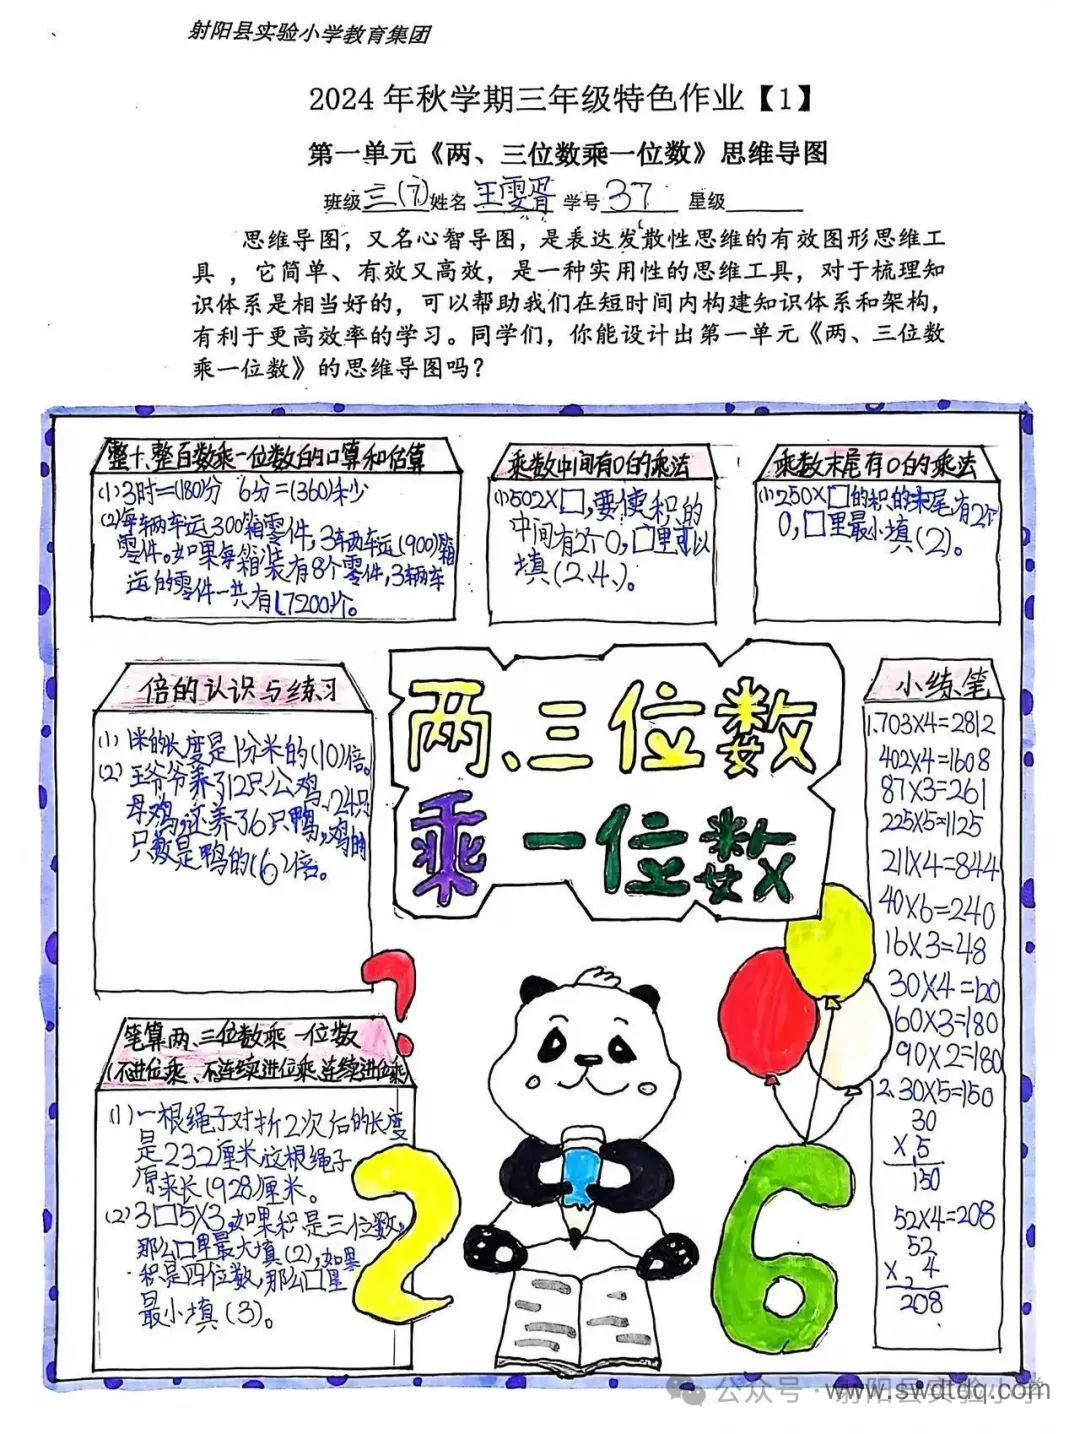 射阳县实验小学教育集团
2024年秋学期三年级特色作业【1】
第一单元《两、三位数乘一位数》思维导图
班级三(7)姓名 王雯胥 学号37 星级
思维导图，又名心智导图，是表达发散性思维的有效图形思维工
具 ，它简单、有效又高效，是一种实用性的思维工具，对于梳理知
识体系是相当好的，可以帮助我们在短时间内构建知识体系和架构，
有利于更高效率的学习。同学们，你能设计出第一单元《两、三位数
乘一位数》的思维导图吗？
整十、整百数乘一位数的口算和估算
(1)3时=(180)分 6分=(360)秒
(2)每辆车运300箱零件,3辆车运(900)箱
零件。如果每箱装有8个零件,3辆车
运的零件一共有(7200)个。
乘数中间有0的乘法
(1)502×□,要使积的
中间有2个0,□里可以
填(2.4.)。
乘数末尾有0的乘法
(1)250×□的积的末尾有2个
0,□里最小填(2)。
倍的认识与练习
(1) 1米的长度是1分米的(10)倍。
(2) 王爷爷养了12只公鸡、24只
母鸡,还养了6只鸭,鸡的
只数是鸭的(6)倍。
两、三位数
乘一位数
小练笔
1.703×4=2812
402×4=1608
87×3=261
225×5=1125
211×4=844
40×6=240
16×3=48
30×4=120
60×3=180
90×2=180
2.30×5=150
30
× 5
150
52×4=208
52
× 4
208
笔算两、三位数乘一位数
(不进位乘、不连续进位乘、连续进位乘)
(1)一根绳子对折2次后的长度
是232厘米,这根绳子
原来长(928)厘米。
(2)3□5×3,如果积是三位数,
那么□里最大填(2),如果
积是四位数,那么□里
最小填(3)。
?
2
6
公众号·射阳县实验小学
www.swdtdq.com